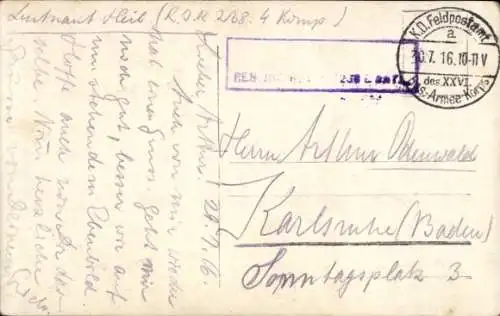 Leutnant Heil (R.I.R. 238. 4 Komp.)
K.D. Feldpostamt
a
30.7.16. 10-11 V
des XXVI.
Res.-Armee-Korps
Lieber Artur! 29.7.16.
Auch von mir wieder
mal einen Gruss. Geht mir
noch gut, besser wie auf
umstehendem Ebenbild.
Hoffe auch von Dir das
selbe. Nun herzliche
Grüsse von Deinem
Herrn Arthur Odenwald
Karlsruhe (Baden)
Sonntagsplatz 3